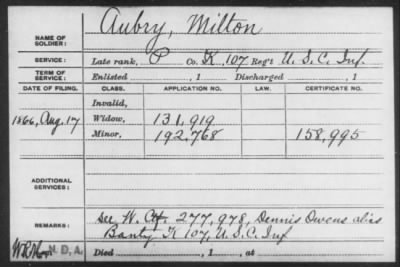 NAME OF SOLDIER: Aubry, Milton
SERVICE: Late rank, P Co. K, 107 Reg't U. S. C. Inf.
TERM OF SERVICE: Enlisted , 1 Discharged , 1
DATE OF FILING. CLASS. APPLICATION NO. LAW. CERTIFICATE NO.
Invalid,
1866, Aug. 17 Widow, 131,919
Minor, 192,768 158,995
ADDITIONAL SERVICES:
REMARKS: See W. 277,978, Dennis Owens alias
Banty K 107, U. S. C. Inf
N. D. A. Died , 1 , at